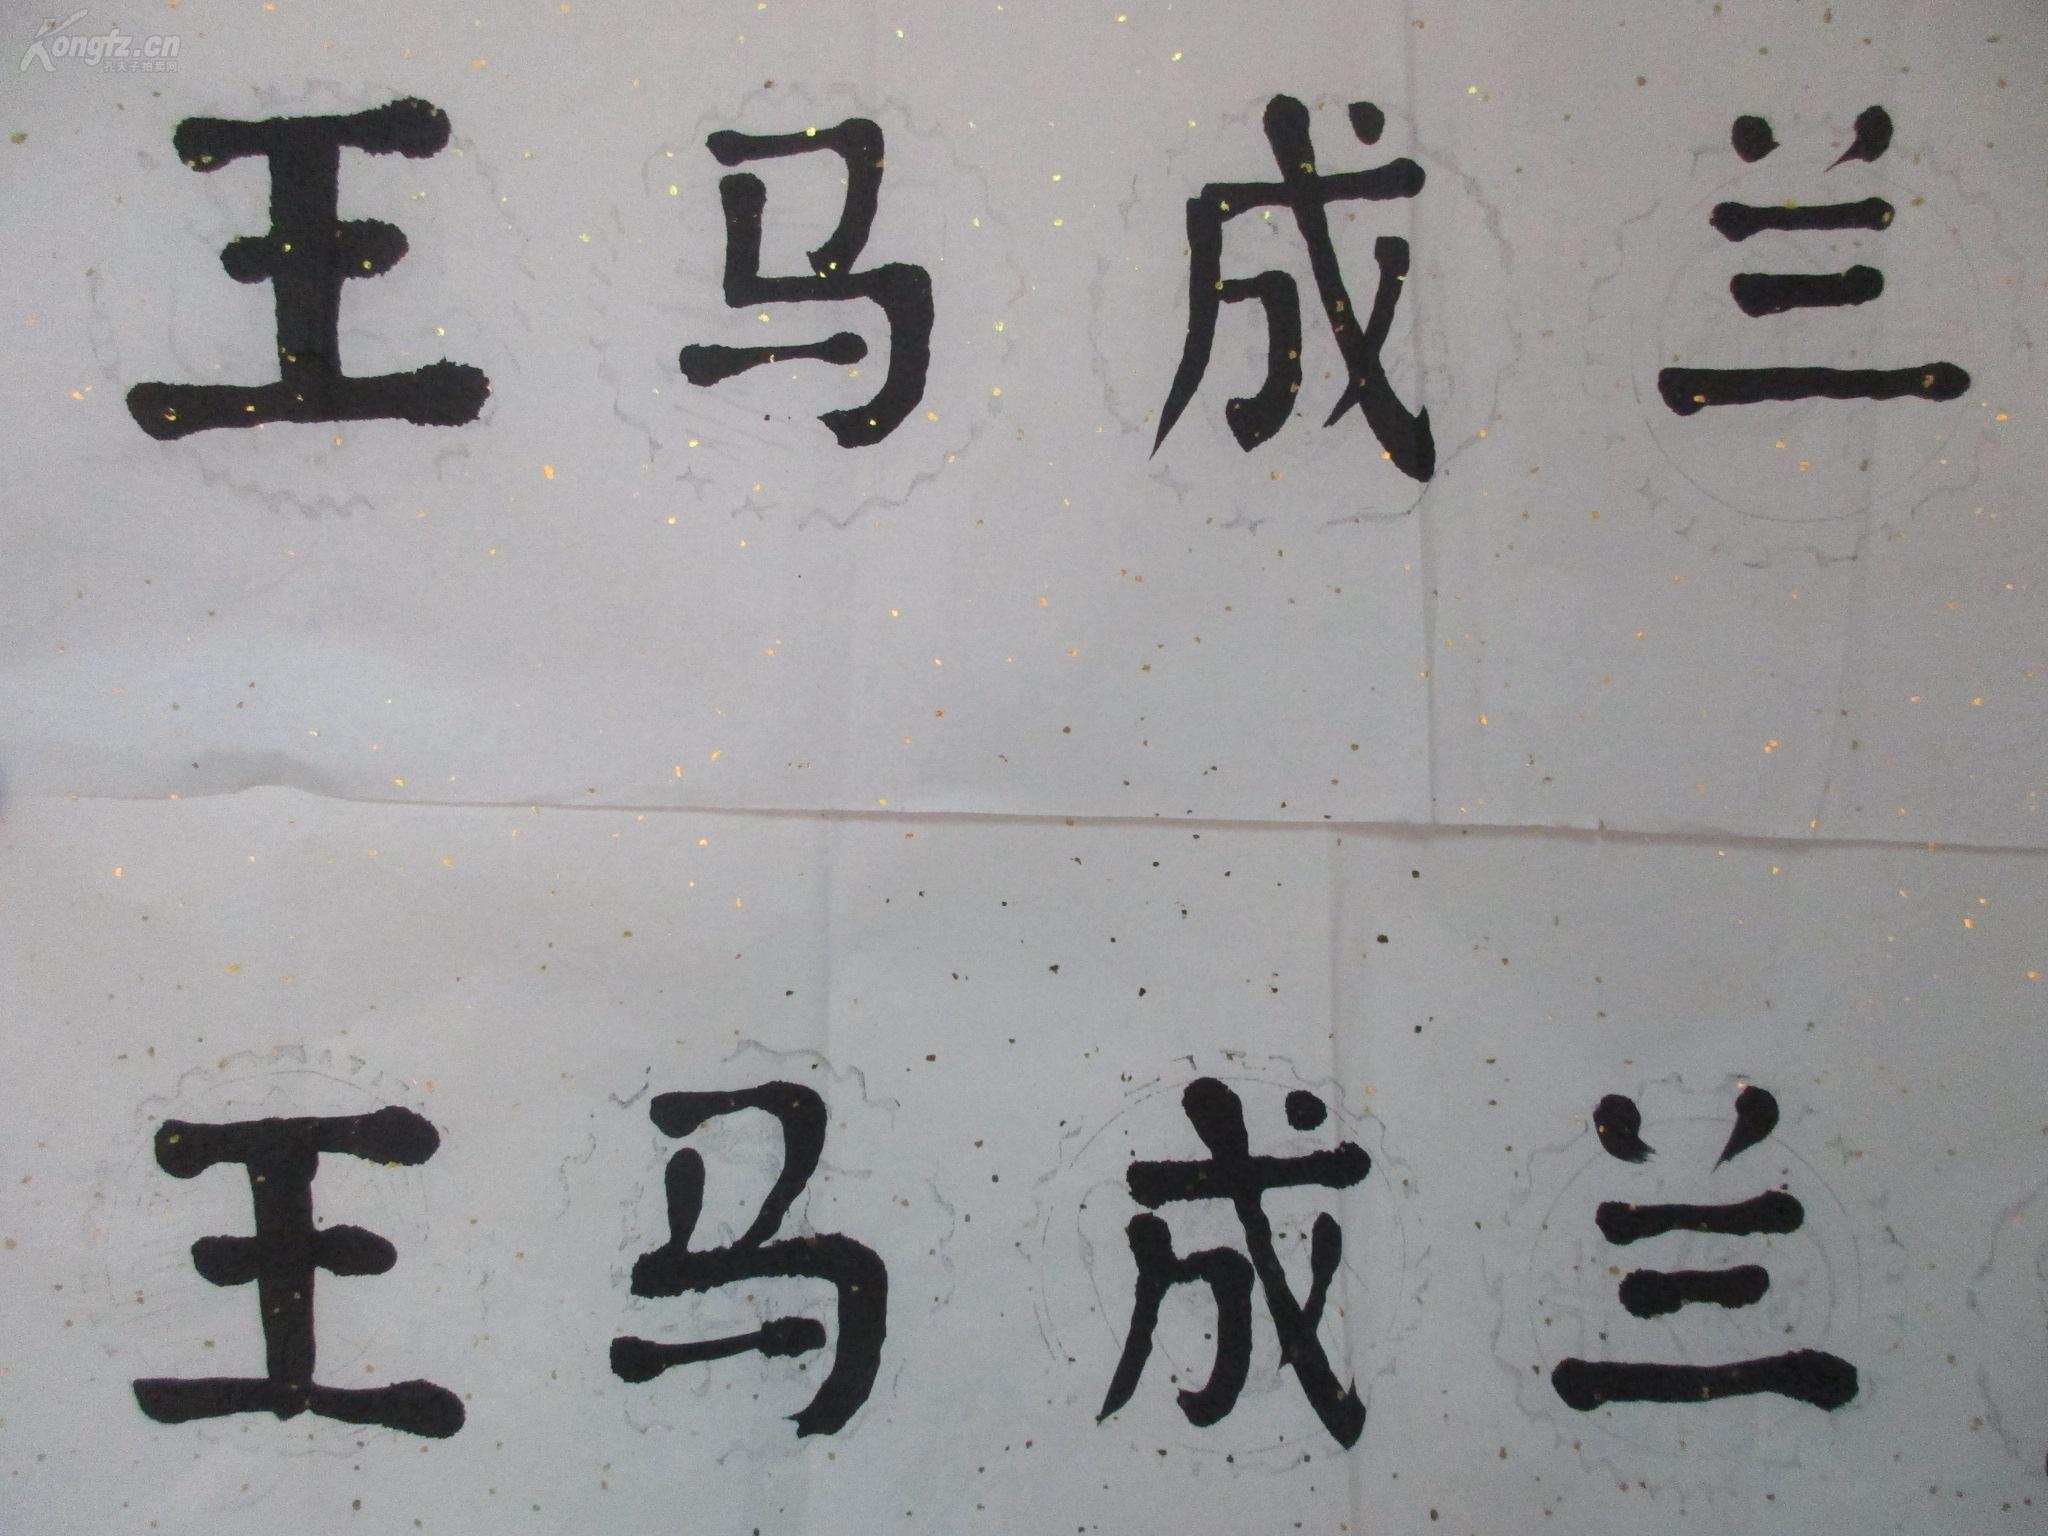 Kongfz.cn
孔夫子拍卖网
王马成兰
王马成兰